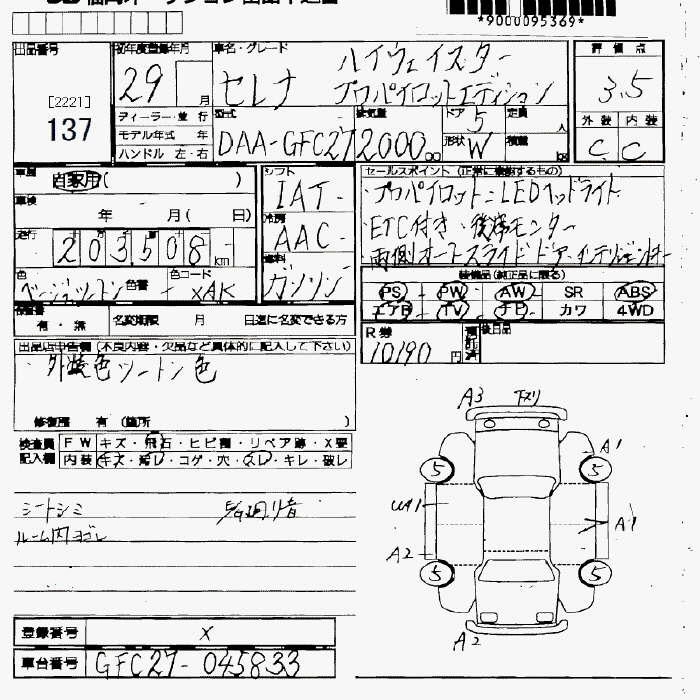 *9000095369*
出品番号
[2221]
137
初年度登録年月
29 月
車名・グレード
セレナ ハイウェイスター
プロパイロットエディション
評価点
3.5
外装 内装
C C
ディーラー・並行
モデル年式 年
ハンドル 左・右
型式
DAA-GFC27
排気量
2000 cc
ドア 5
形状 W
定員 人
積載 kg
車歴
自家用( )
車検
年 月( 日)
走行
203508 km
色
ベージュツートン
色番
色コード
XAK
シフト
IAT
冷房
AAC
燃料
ガソリン
セールスポイント (正常に機動するもの)
・プロパイロット・LEDヘッドライト
・ETC付き・後席モニター
・両側オートスライドドア・インテリジェントキー
装備品(純正品に限る)
PS PW AW SR ABS
エアB TV ナビ カワ 4WD
有・無
名変期限 月 日迄に名変できる方
R券
10190 円
預託済
後日品
出品店申告欄 (不良内容・欠品など具体的に記入して下さい)
・外装色ツートン色
修復歴 有 (箇所 )
検査員
記入欄
FW キズ・飛石・ヒビ割・リペア跡・X要
内装 キズ・汚レ・コゲ・穴・スレ・キレ・破レ
シートシミ
ルーム内ヨゴレ
A3 下スリ
A1
5 5
A1
A2
5 5
A2
登録番号 X
車台番号 GFC27-045833